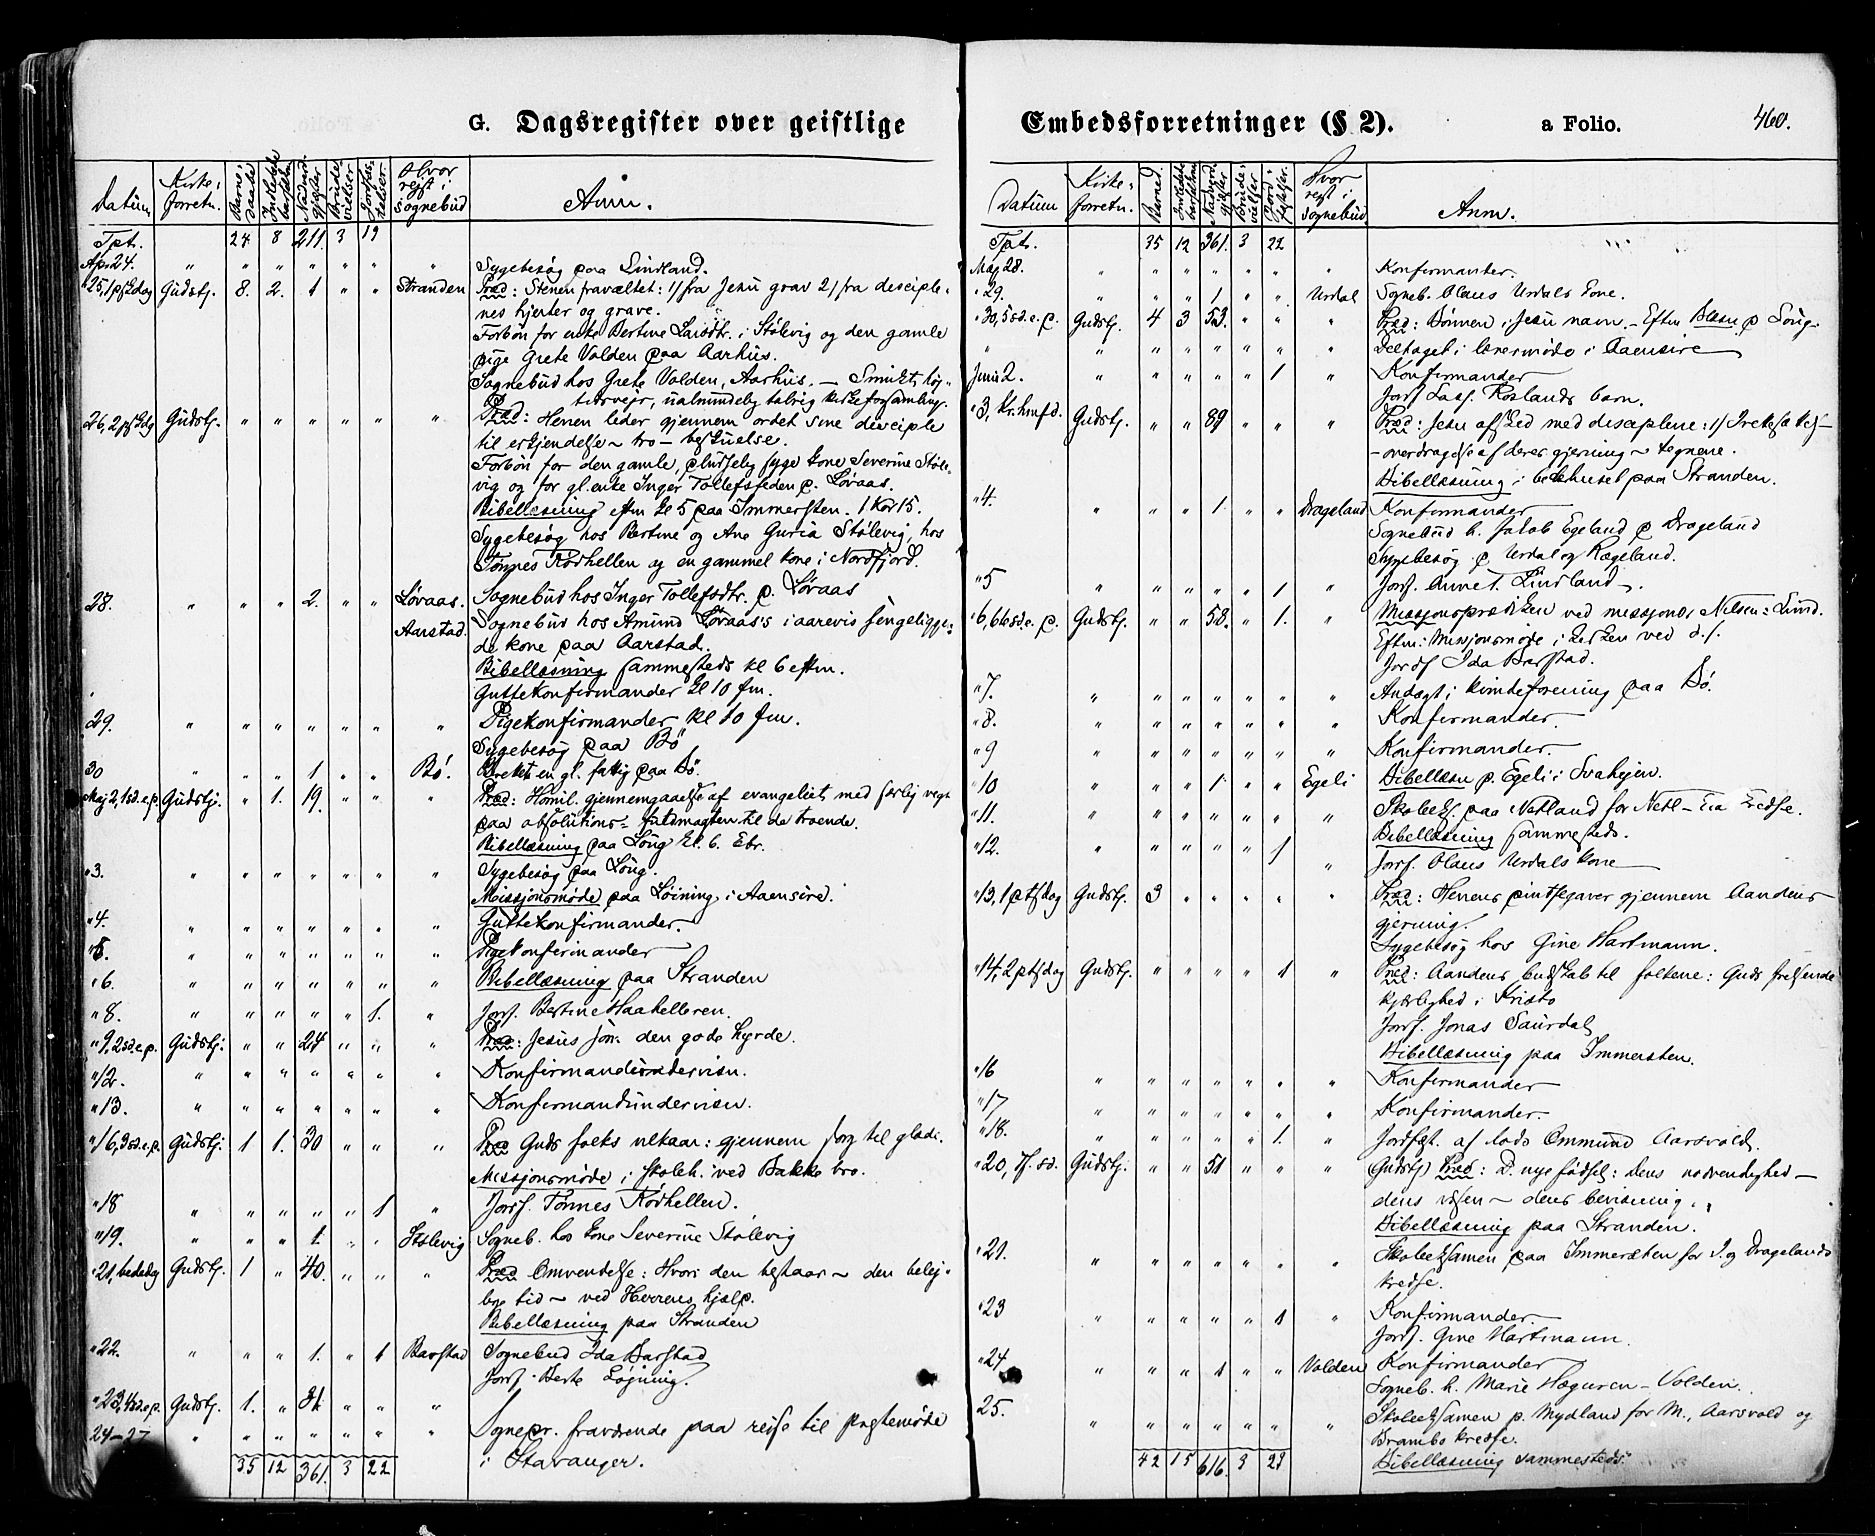 G. Dagsregister over geistlige
Datum Kirke-forretn. Barne-daab Indledede barselk. Nadverd-gjester Brude-vielser Jordfæs-telser Hvor rejst i sognebud Anm.
Tpt. 27 8 211 3 19
Apr. 24. " " " " " " " Sygebesøg paa Lindland.
"25, 1 pskdag Gudstj. 8. 2. 1 " " Stranden Præd: Stenen fravæltet: 1/ fra Jesu grav 2/ fra disciple-
nes hjerter og grave.
Forbøn for enke Bertine Larsdtr. i Stølevig og den gamle
pige Grete Valden paa Aarhus.
Sognebud hos Grete Valden, Aarhus. — Smukt, høj-
tidsvejr, ualmindelig talrig kirkeforsamling.
26, 2 pskdg Gudstj. " " " " " " Præd: Herren leder gjennem ordet sine disciple
til erkjendelse – tro – beskuelse.
Forbøn for den gamle, pludselig syge kone Severine Støle-
vig og for gl. enke Inger Tollefs p. Løvaas.
Bibellæsning eftm kl 5 paa Immersten. 1 Kor 15.
Sygebesøg hos Bertine og Ane Guria Stölevig, hos
Tønnes Rødhellen og en gammel kone i Nordfjord.
28. " " " 2. " " Løvaas. Sognebud hos Inger Tollefsdtr. p. Løvaas
Aarstad. Sognebud hos Amund Løvaas's i aarevis sengeliggen-
de kone paa Aarstad.
Bibellæsning sammesteds kl 6 eftm.
Guttekonfirmander kl 10 fm.
29. " " " " " " " Pigekonfirmander kl 10 fm.
Sygebesøg paa Bø
30 " " " 1 " " Bø. en gl. fattig paa Bø.
Mej 2, 1 sd. e. p. Gudstj. " 1. 19. " " " Præd: Homil. gjennemgaaelse af evangeliet med særlig vegt
paa absolutions-fuldmagten til de troende.
Bibellæsning paa Løng kl. 6. Ebr.
"3. " " " " " " " Sygebesøg paa Løng.
Missjonsmøde paa Løining, i Aaensire.
"4. " " " " " " " Guttekonfirmander.
"5. " " " " " " " Pigekonfirmander
"6. " " " " " " " Bibellæsning paa Stranden
"8. " " " " " 1. " Jorf. Bertine Haahelleren.
"9, 2 sd. e. p. Gudstj. " " 24 " " " Præd: Jesus som den gode hyrde.
"12. " " " " " " " Konfirmandundervisn.
"13. " " " " " " " Konfirmandundervisn.
"16, 3 sd. e. p. Gudstj. 1 1. 30 " " " Præd Guds folks vilkaar: gjennem sorg til glæde.
Missjonsmøde i skoleh. ved Bakke bro.
"18 " " " " " 1 " Jorf. Tønnes Rødhellen.
"19. " " " 1. " " Stølevig Sogneb. hos kone Severine Stølevig
"21, bededag Gudstj. 1 " 40. " " " Præd Omvendelse: Hvori den bestaar – den belej-
lige tid – ved Herrens hjælp.
Bibellæsning paa Stranden
"22. " " " 1. " 1 Barstad Sognebud Ida Barstad
Jorf. Berte Løjning.
"23, 4 sd. e. p. Gudstj. 1. " 31. " " "
24–27 " " " " " " " Sognepr. fraværende paa rejse til prestemøde
i Stavanger.
35 12 361. 3 22
Embedsforretninger (§ 2). a Folio. 460.
Datum Kirke-forretn. Barned. Indledede barselkon. Nadverd-gjester Brude-vielser Jord-fæstelser. Hvor rejst i sognebud Anm.
Tpt. 35 12 361. 3 22
Maj 28. " " " " " " " Konfirmanter.
"29. " " " 1 " " Urdal Sogneb. Olaus Urdals kone.
"30, 5 sd. e. p. Gudstj. 4 3 53. " " " Præd: Bønnen i Jesu navn. – Eftm Blæsn p Löng
" " " " " " " " Deltaget i læsermøde i Aaensire
Juni 2. " " " " " 1 " Konfirmander
Jorf Roslands barn.
"3, Kr. hmfd. Gudstj. " " 89 " " " Præd: Jesu afsked med disciplene:
– overdragelse af deres gjerning – tegnene.
Bibellæsning i bedehuset paa Stranden.
"4. " " " 1. " " Drageland Konfirmander
Sognebud h. Jakob Egeland p Drageland
Sygebesøg p Urdal og Kægeland.
"5 " " " " " 1 " Jorf. Annet. Lindland
"6, 6 sd. e. p. Gudstj. " " 58. " 1. " Missjonsprædiken ved missjonær Nilsen: Lund.
Eftm: Missjonsmøde i kirken ved d. s.
Jordf Ida Barstad.
"7. " " " " " " " Andagt i kvindeforening paa Bø.
"8. " " " " " " " Konfirmander.
"9 " " " " " " " Konfirmander.
"10 " " " 1. " " Egeli Bibellæsn p. Egeli i Svahejen.
"11. " " " " " " " Skoleeks. paa Netland for Netl – Eia kredse.
Bibellæsning sammesteds.
"12. " " " " " 1 " Jorf. Olaus Urdals kone
"13, 1 ptsdag Gudstj. 3 " " " " " Præd: Herrens pintsegaver gjennem Aandens
gjerning.
Sygebesøg hos Gine Hartmann.
"14, 2 ptsdag Gudstj. " " " " 1 " Præd: Aandens budskab til folkene: Guds frelsende
kjærlighed i Kristo
Jorf. Jonas Saurdal
Bibellæsning paa Immersten.
"16 " " " " " " " Konfirmander
"17 " " " " " " " Konfirmander
"18. " " " " " 1. " Jordfæst. af lods Ommund Aarsvold
"20, Tf. sd. Gudstj. " " 51 " " " Gudstj Præd: D. nye fødsel: dens nødvendighed –
dens væsen – dens bevisning.
Bibellæsning paa Stranden.
"21. " " " " " " " Skoleeksamen paa Immersten for I. og Dragelands
kredse.
"23 " " " " " 1 " Konfirmander.
Jorf. Gine Hartmann.
"24 " " " 1 " " Valden Konfirmander
Sogneb. h. Marie Hæguren – Valden.
25. " " " " " " " Skoleeksamen p. Mydland for M., Aarsvold og
Brambo kredse.
Bibellæsning sammesteds.
42 15 616. 3 27